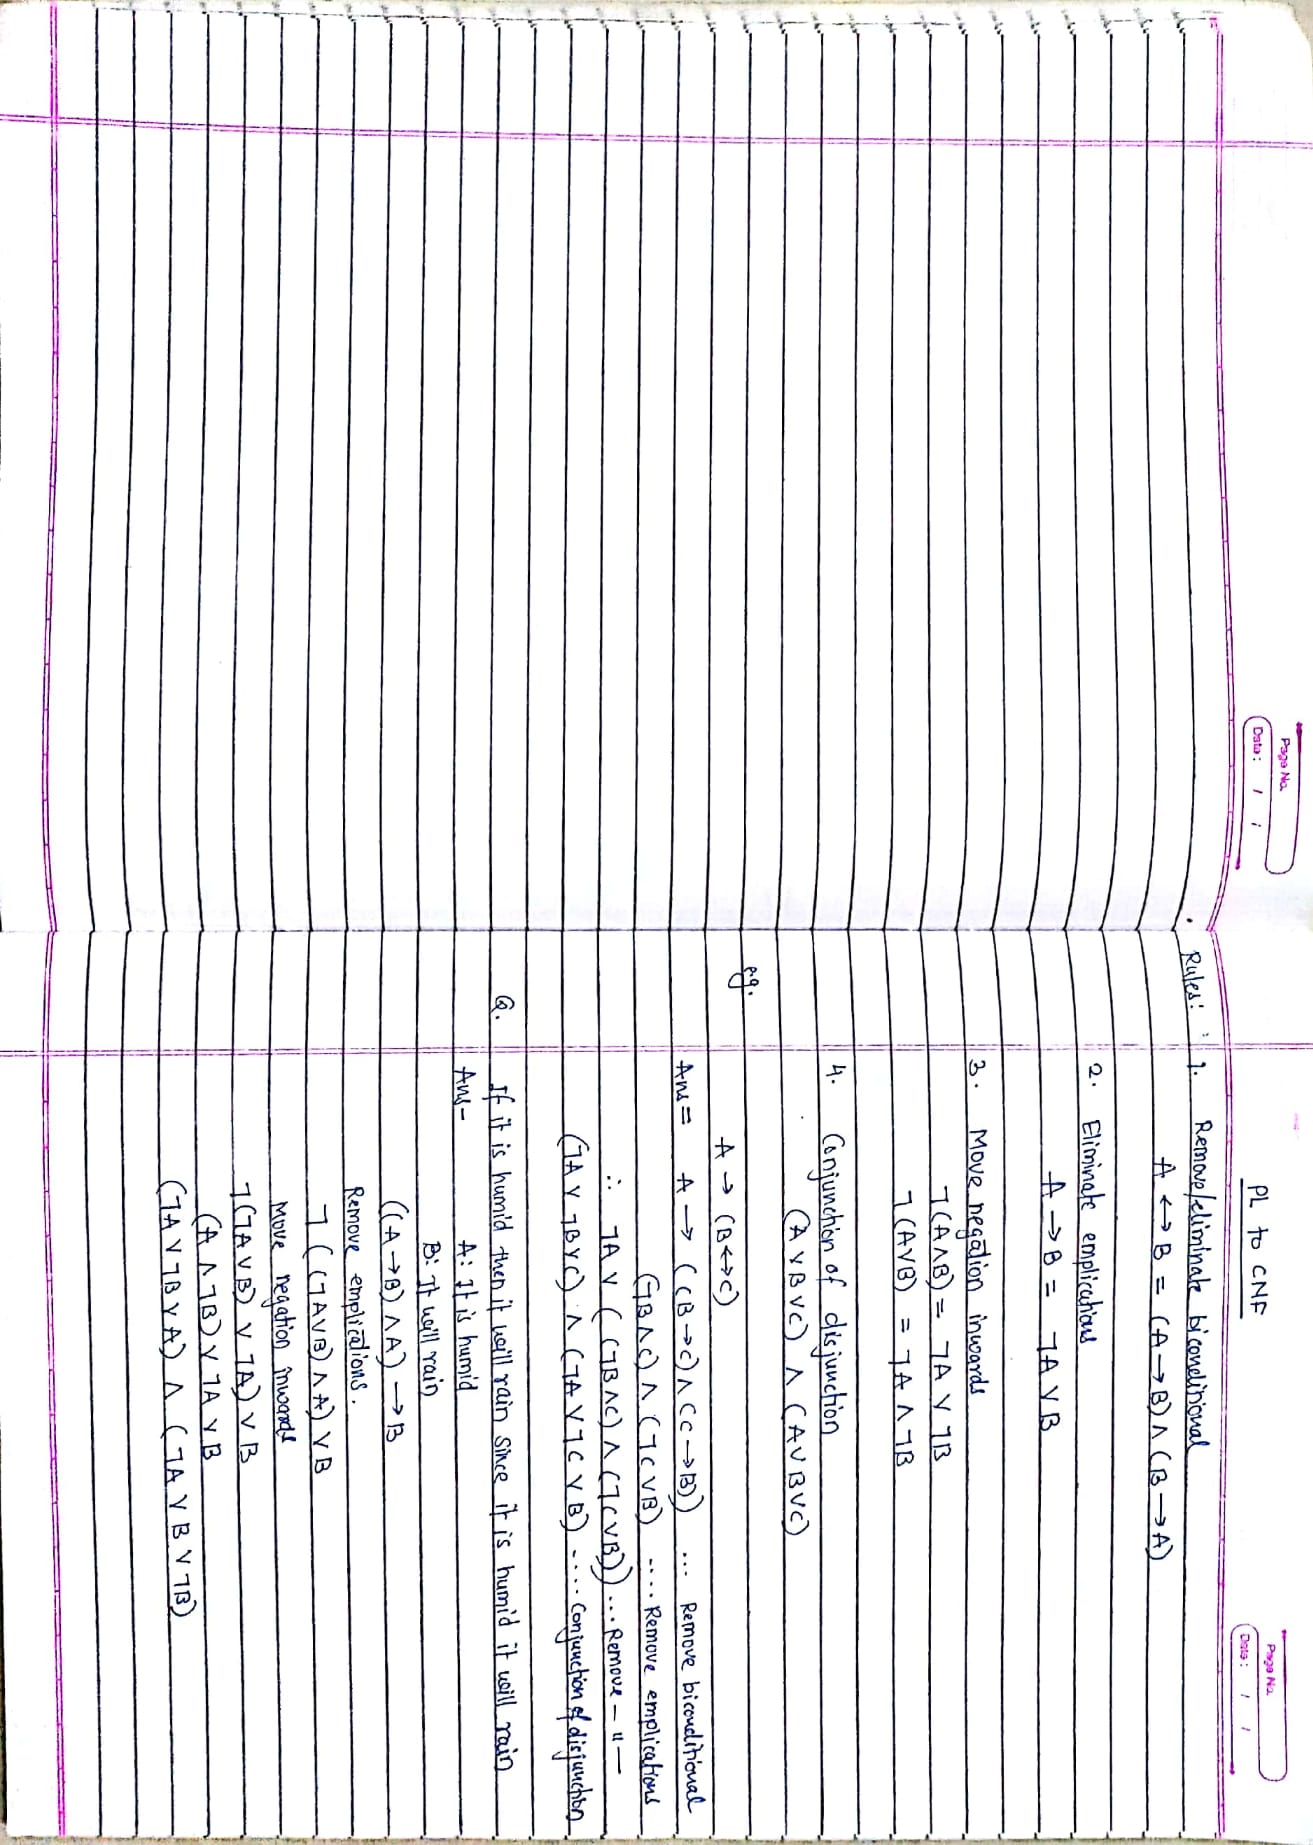 Page No.
Date: / /
PL to CNF
Page No.
Date: / /
Rules: 1. Remove/eliminate biconditional
A ↔ B = (A→B)∧(B→A)
2. Eliminate emplications
A → B = ¬A ∨ B
3. Move negation inwards
¬(A∧B) = ¬A ∨ ¬B
¬(A∨B) = ¬A ∧ ¬B
4. Conjunction of disjunction
(A∨B∨C) ∧ (A∨B∨C)
e.g.
A → (B↔C)
Ans = A → ((B→C)∧(C→B)) ... Remove biconditional
(¬B∧C) ∧ (¬C∨B) .... Remove emplications
∴ ¬A ∨ ((¬B∧C) ∧ (¬C∨B)) ... Remove —〃—
(¬A ∨ ¬B∨C) ∧ (¬A∨¬C∨B) .... Conjunction of disjunction
Q. If it is humid then it will rain since it is humid it will rain
Ans- A: It is humid
B: It will rain
((A→B)∧A) → B
Remove emplications.
¬((¬A∨B)∧A) ∨ B
Move negation inwards
¬(¬A∨B) ∨ ¬A) ∨ B
(A ∧ ¬B) ∨ ¬A ∨ B
(¬A∨¬B∨A) ∧ (¬A∨B∨¬B)